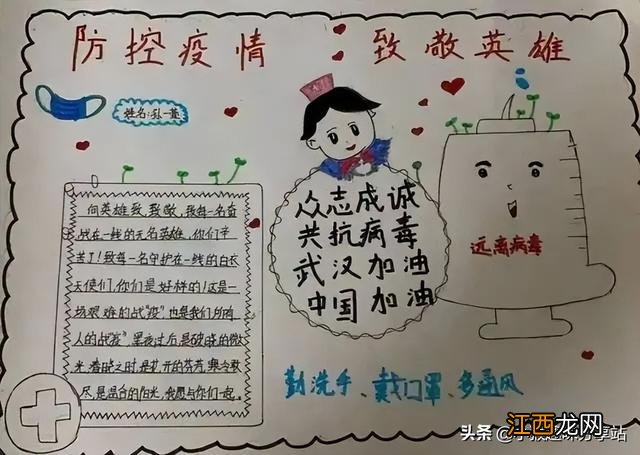 防控疫情 致敬英雄
姓名:孙一萱
向英雄致敬,致每一名奋
战在一线的无名英雄,你们辛
苦了!致每一名守护在一线的白衣
天使们,你们是好样的!这是一
场艰难的战"疫"也是我们所有
人的战疫"黑夜过后,是破晓的微
光,春晓之时,是花开的芬芳,寒冬散
尽,是温合的阳光,我愿与你们一起。
众志成诚
共抗病毒
武汉加油
中国加油
远离病毒
勤洗手、戴口罩、多通风
江西龙网
头条